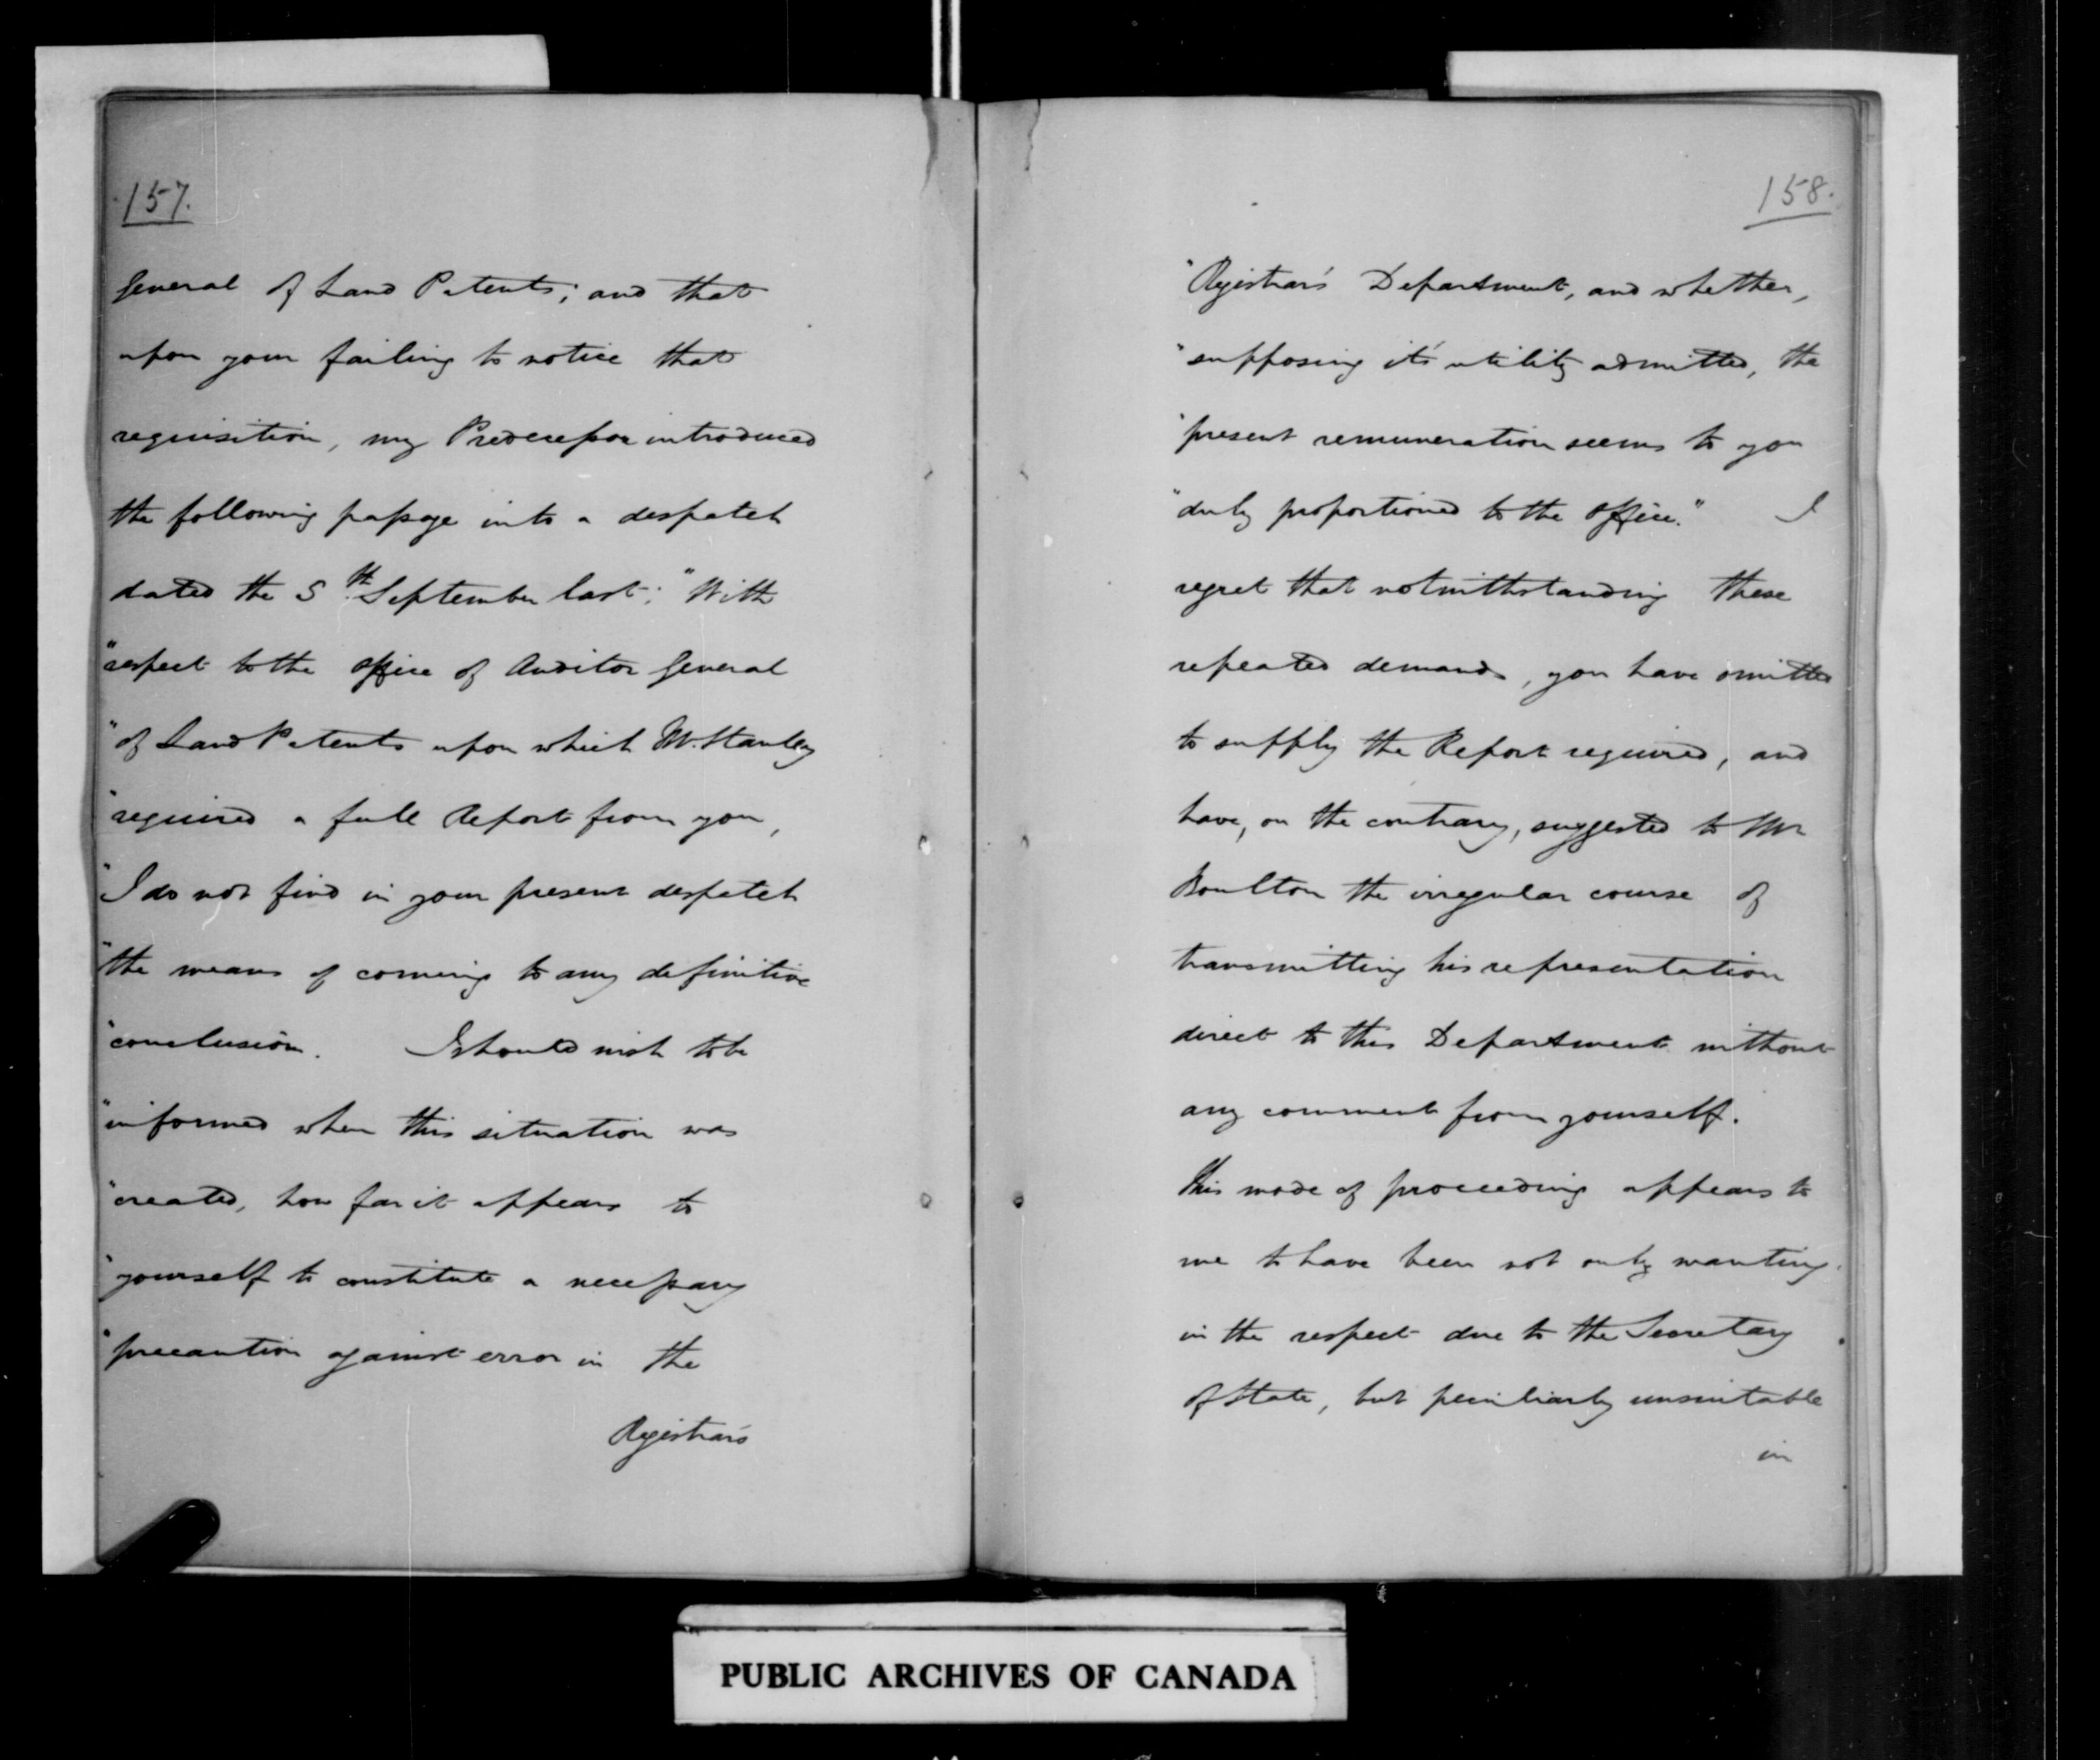 157.
General of Land Patents; and that
upon your failing to notice that
requisition, my Predecessor introduced
the following passage into a despatch
dated the 5th September last: "With
"respect to the office of Auditor General
"of Land Patents upon which Mr. Stanley
"required a full Report from you,
"I do not find in your present despatch
"the means of coming to any definitive
"conclusion. I should wish to be
"informed when this situation was
"created, how far it appears to
"yourself to constitute a necessary
"precaution against error in the
Registrar's
158.
"Registrar's Department, and whether,
"supposing it's utility admitted, the
"present remuneration seems to you
"duly proportioned to the office." I
regret that notwithstanding these
repeated demands, you have omitted
to supply the Report required, and
have, on the contrary, suggested to Mr
Boulton the irregular course of
transmitting his representation
direct to this Department without
any comment from yourself.
This mode of proceeding appears to
me to have been not only wanting
in the respect due to the Secretary
of State, but peculiarly unsuitable
in
PUBLIC ARCHIVES OF CANADA